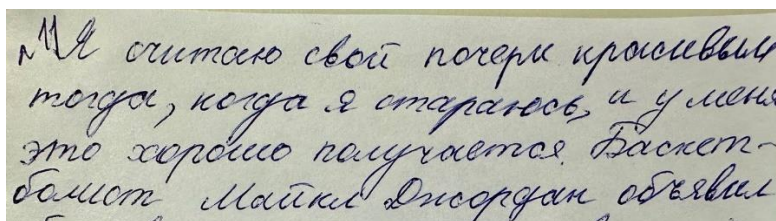 №11 Я считаю свой почерк красивым
тогда, когда я стараюсь, и у меня
это хорошо получается. Баскет-
болист Майкл Джордан объявил